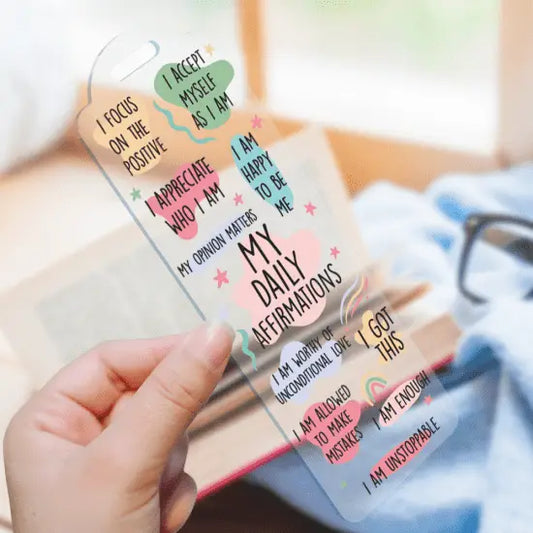 I ACCEPT
MYSELF
AS I AM
I FOCUS
ON THE
POSITIVE
I AM
HAPPY
TO BE
ME
I APPRECIATE
WHO I AM
MY OPINION MATTERS
MY
DAILY
AFFIRMATIONS
I GOT
THIS
I AM WORTHY OF
UNCONDITIONAL LOVE
I AM ENOUGH
I AM ALLOWED
TO MAKE
MISTAKES
I AM UNSTOPPABLE